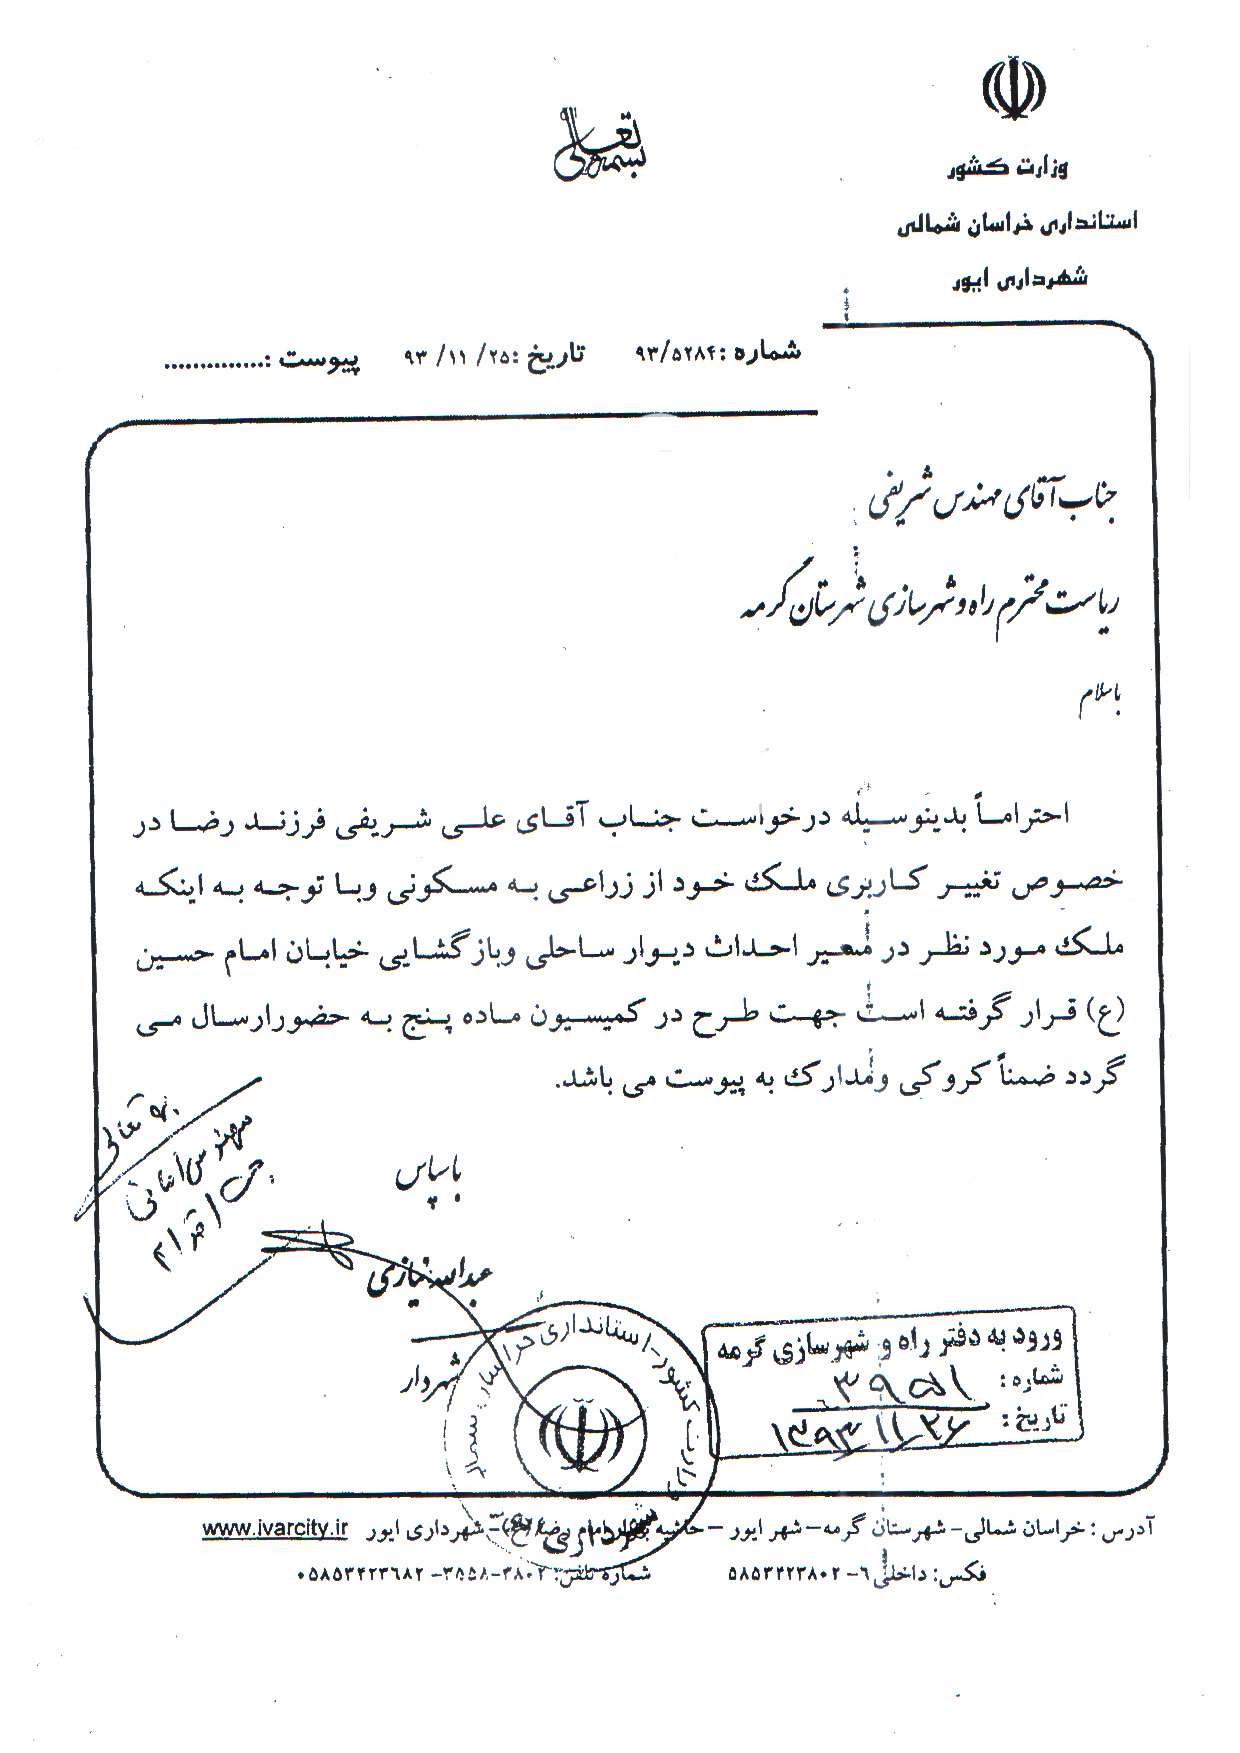 بسمه تعالی
وزارت کشور
استانداری خراسان شمالی
شهرداری ایور
شماره :۹۳/۵۲۸۴ تاریخ :۲۵/ ۱۱/ ۹۳ پیوست :..............
جناب آقای مهندس شریفی
ریاست محترم راه و شهرسازی شهرستان گرمه
باسلام
احتراماً بدینوسیله درخواست جناب آقای علی شریفی فرزند رضا در
خصوص تغییر کاربری ملک خود از زراعی به مسکونی وبا توجه به اینکه
ملک مورد نظر در معیر احداث دیوار ساحلی وبازگشایی خیابان امام حسین
(ع) قرار گرفته است جهت طرح در کمیسیون ماده پنج به حضورارسال می
گردد ضمناً کروکی ومدارک به پیوست می باشد.
به تعالی
مهندس
جهت اقدام
باسپاس
عبداله نیازی
شهردار
وزارت کشور-استانداری خراسان شمالی
شهرداری ایور
ورود به دفتر راه و شهرسازی گرمه
شماره: ۳۹۵۱
تاریخ: ۱۳۹۳/۱۱/۲۶
آدرس : خراسان شمالی- شهرستان گرمه– شهر ایور – حاشیه بلوار امام رضا (ع)- شهرداری ایور www.ivarcity.ir
فکس: داخلی ۶- ۵۸۵۳۲۲۳۸۰۲ شماره تلفن: ۳۸۰۲-۳۵۵۸- ۰۵۸۵۳۲۲۳۶۸۲